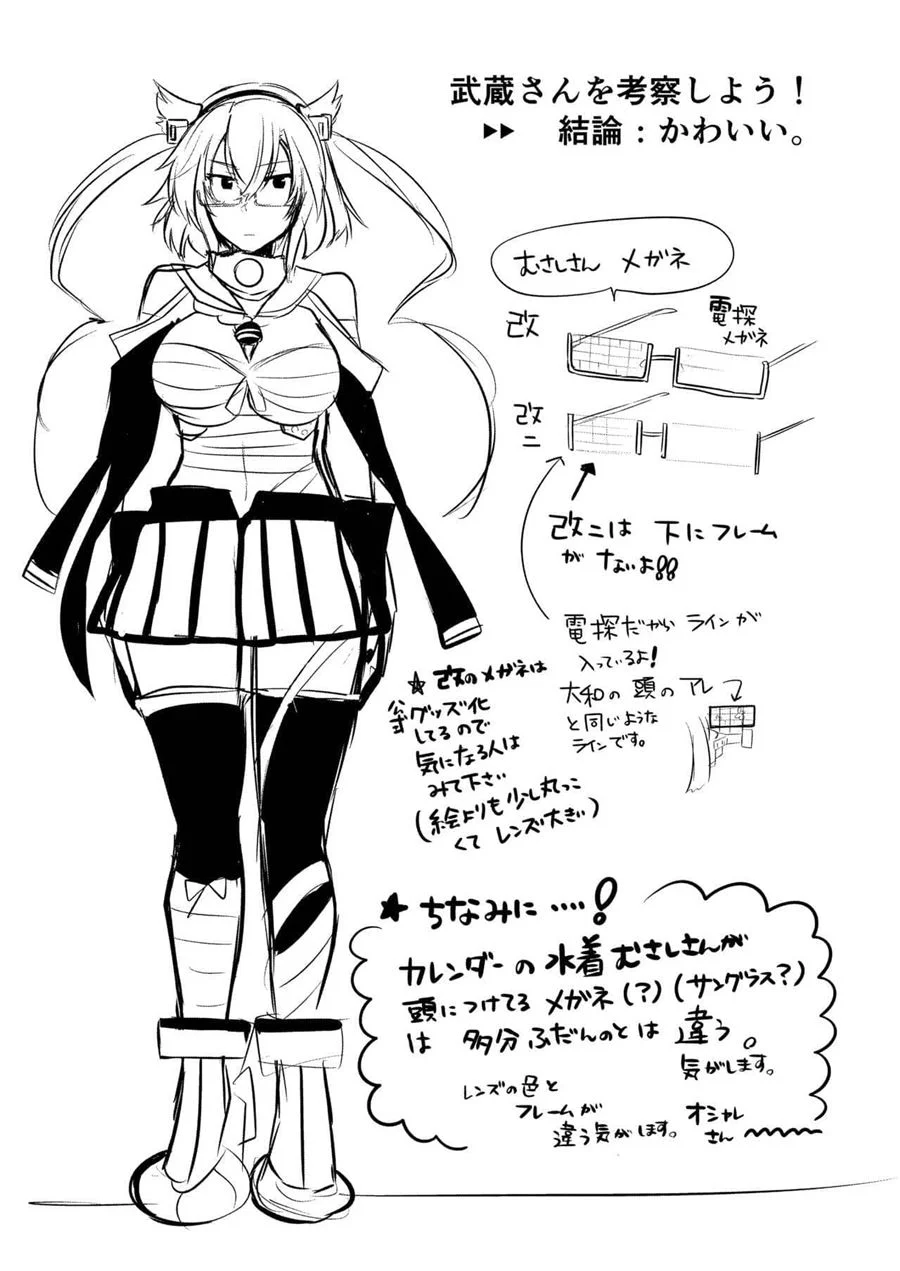 武蔵さんを考察しよう！
▶▶ 結論：かわいい。
むさしさん メガネ
改
電探
メガネ
改
二
改二は 下にフレーム
が ないよ!!
電探だから ラインが
入っているよ!
大和の頭のアレ
と同じような
ラインです。
★ 改のメガネは
公式グッズ化
してるので
気になる人は
みて下さい
(絵よりも少し丸っこ
くて レンズ大きい)
★ ちなみに ‥‥!
カレンダーの水着むさしさんが
頭につけてる メガネ(?)(サングラス?)
は 多分ふだんのとは 違う。
気がします。
レンズの色と
フレームが
違う気がします。
オシャレ
さん